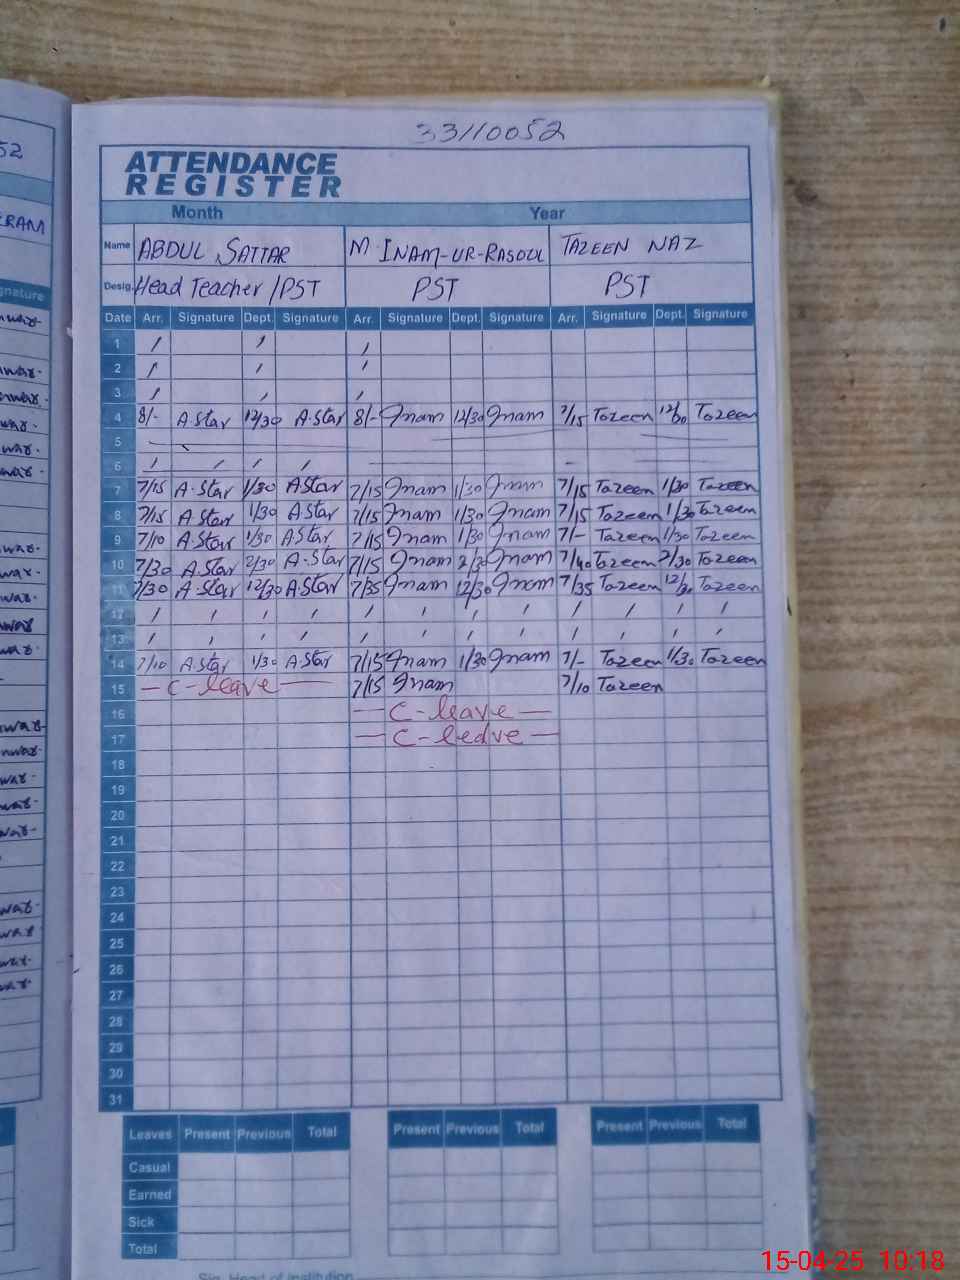 33110052
ATTENDANCE
REGISTER
Month Year
Name ABDUL SATTAR M. INAM-UR-RASOOL TAZEEN NAZ
Desig. Head Teacher/PST PST PST
Date Arr. Signature Dept. Signature Arr. Signature Dept. Signature Arr. Signature Dept. Signature
1
2
3
4 8/- A.Star 12/30 A.Star 8/- Inam 12/30 Inam 7/15 Tazeen 12/30 Tazeen
5
6
7 7/15 A.Star 1/30 A.Star 7/15 Inam 1/30 Inam 7/15 Tazeen 1/30 Tazeen
8 7/15 A.Star 1/30 A.Star 7/15 Inam 1/30 Inam 7/15 Tazeen 1/30 Tazeen
9 7/10 A.Star 1/30 A.Star 7/15 Inam 1/30 Inam 7/- Tazeen 1/30 Tazeen
10 7/30 A.Star 2/30 A.Star 7/15 Inam 2/30 Inam 7/40 Tazeen 2/30 Tazeen
11 7/30 A.Star 12/30 A.Star 7/35 Inam 12/30 Inam 7/35 Tazeen 12/30 Tazeen
12
13
14 7/10 A.Star 1/30 A.Star 7/15 Inam 1/30 Inam 7/- Tazeen 1/30 Tazeen
15 – C-leave – 7/15 Inam 7/10 Tazeen
16 – C-leave –
17 – C-leave –
18
19
20
21
22
23
24
25
26
27
28
29
30
31
Leaves Present Previous Total Present Previous Total Present Previous Total
Casual
Earned
Sick
Total
Sig. Head of Institution
15-04-25 10:18